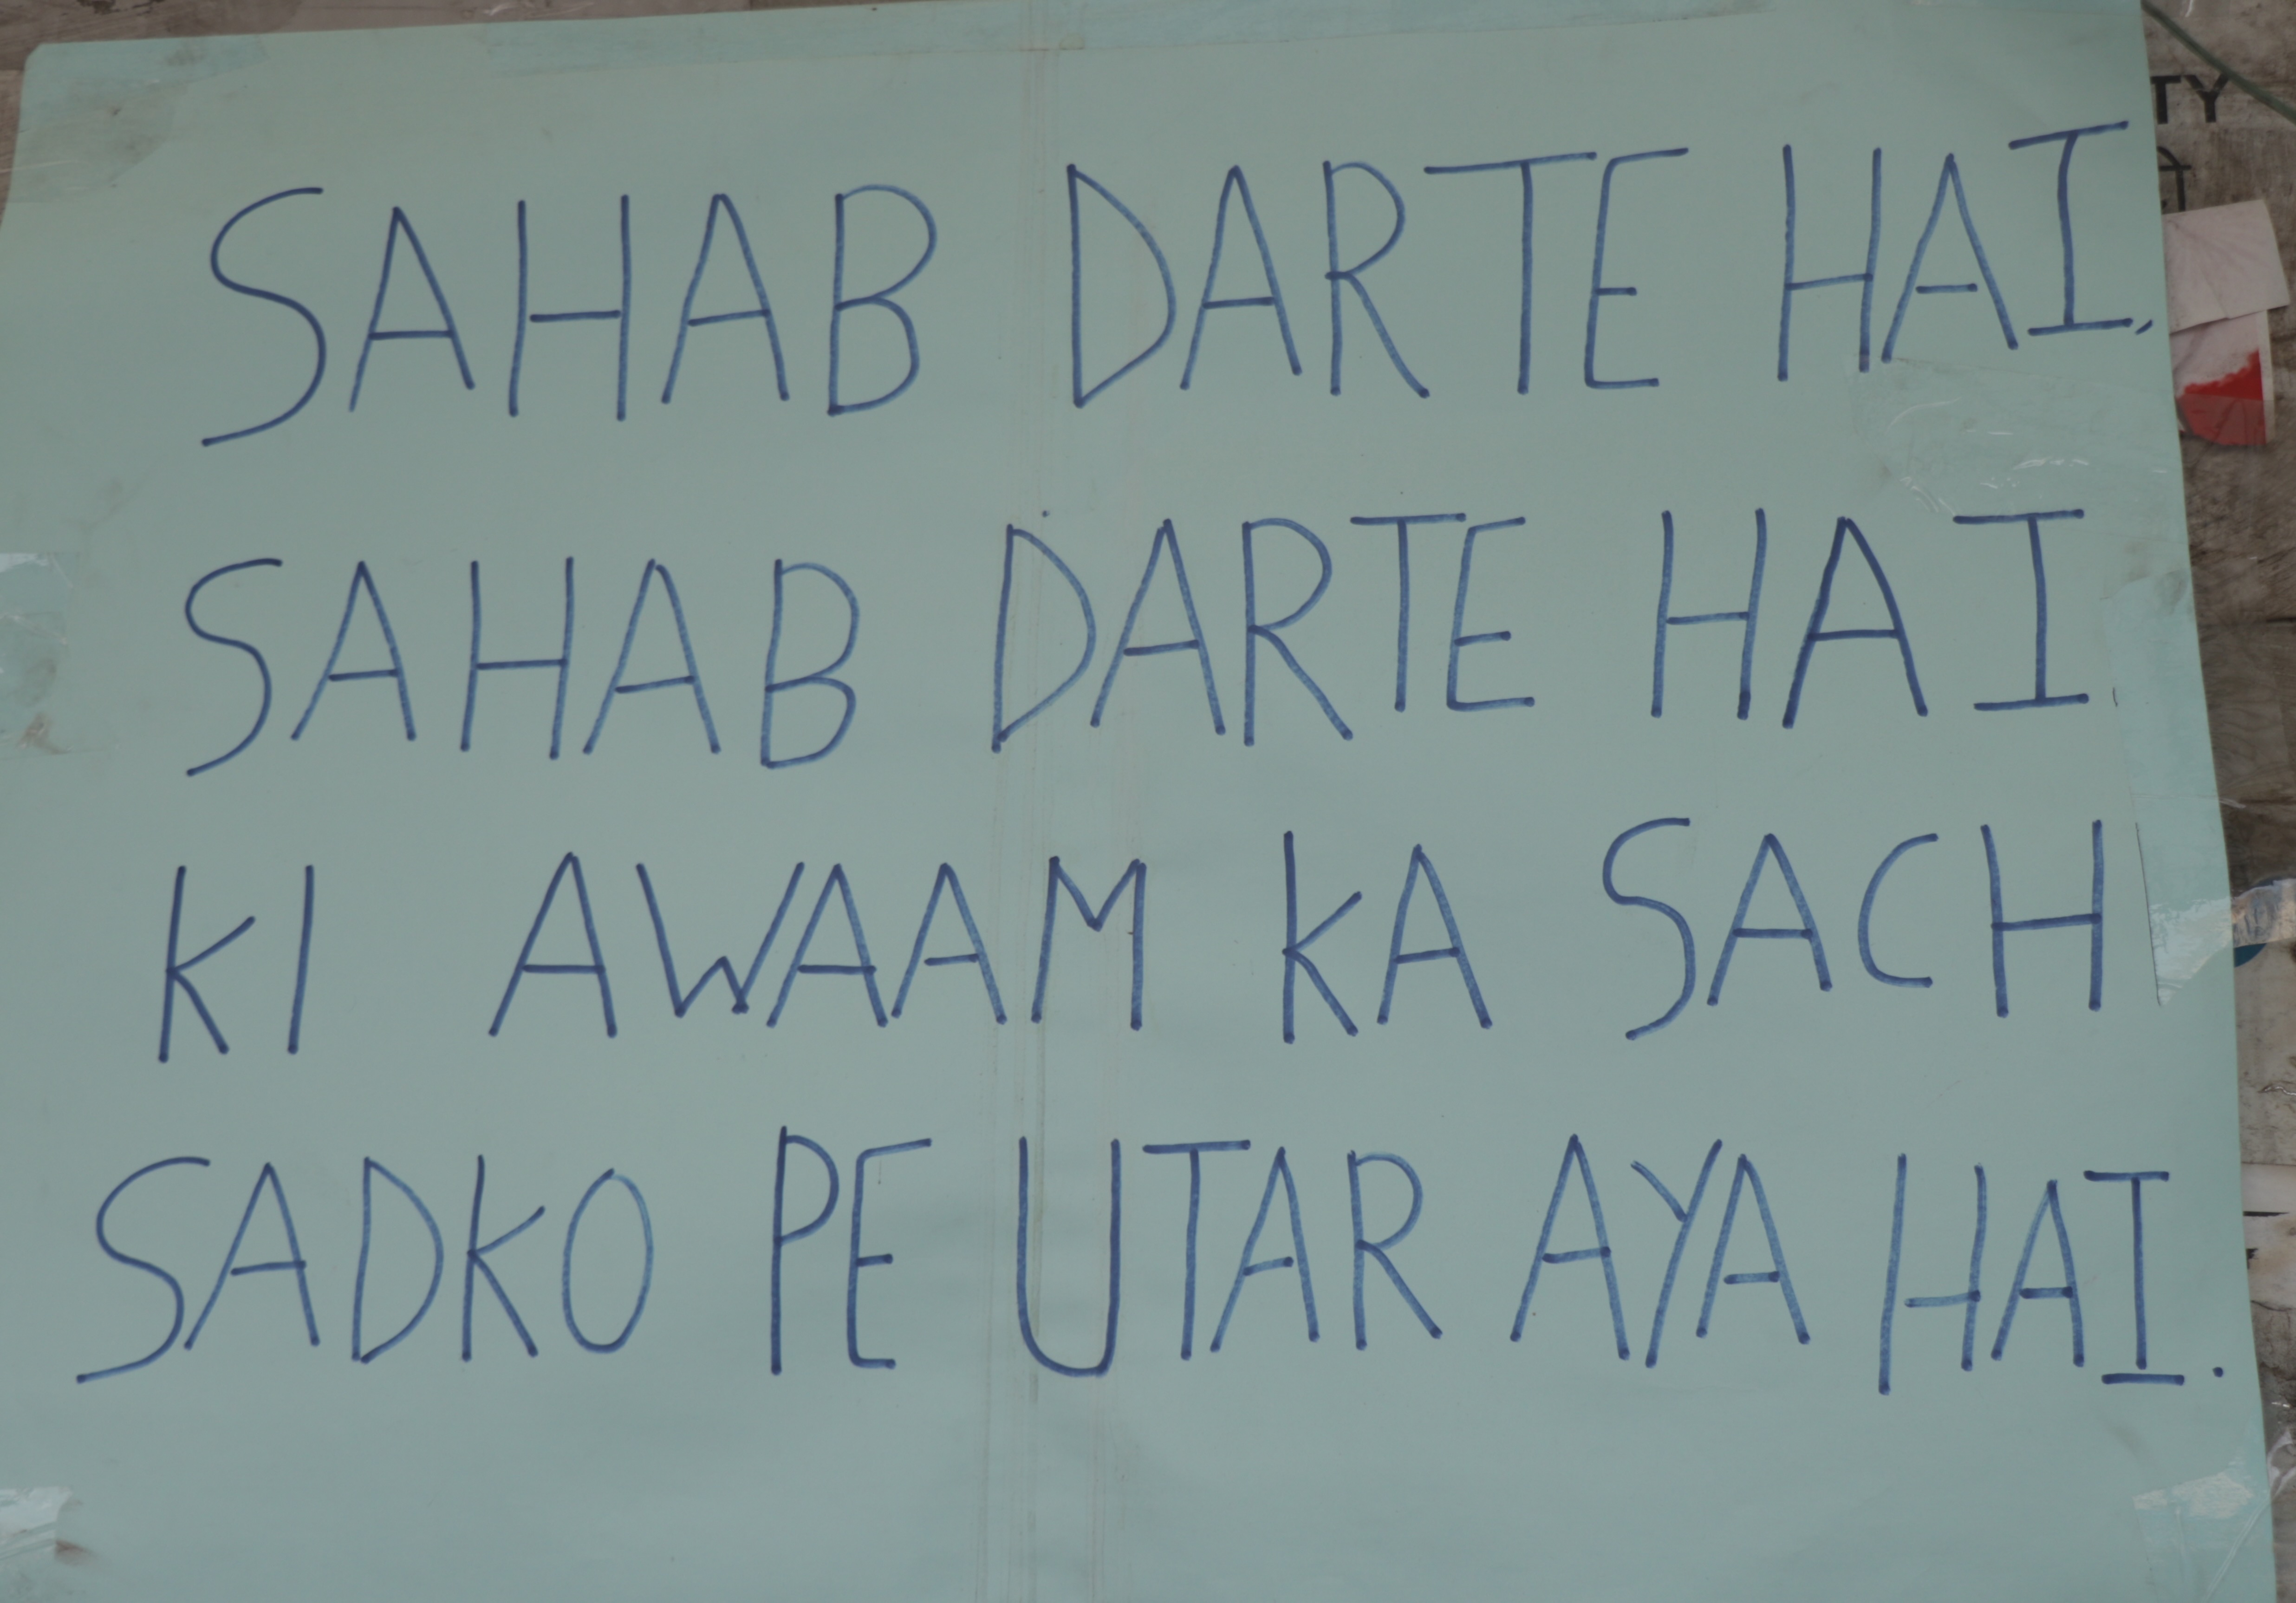 SAHAB DARTE HAI,
SAHAB DARTE HAI
KI AWAAM KA SACH
SADKO PE UTAR AYA HAI.
TY